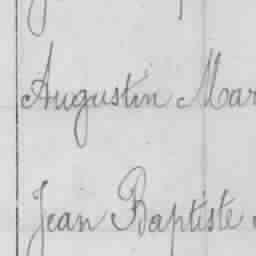 Augustin Mar
Jean Baptiste